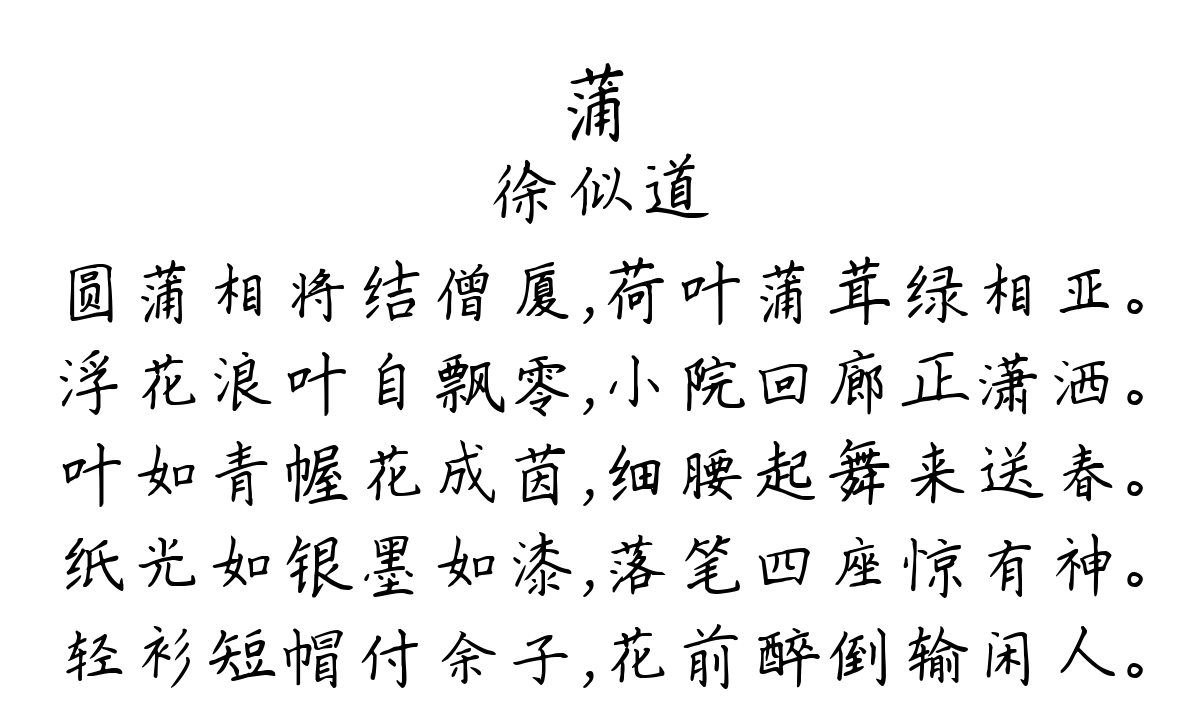 蒲
徐似道
圆蒲相将结僧厦,荷叶蒲茸绿相亚。
浮花浪叶自飘零,小院回廊正潇洒。
叶如青幄花成茵,细腰起舞来送春。
纸光如银墨如漆,落笔四座惊有神。
轻衫短帽付余子,花前醉倒输闲人。